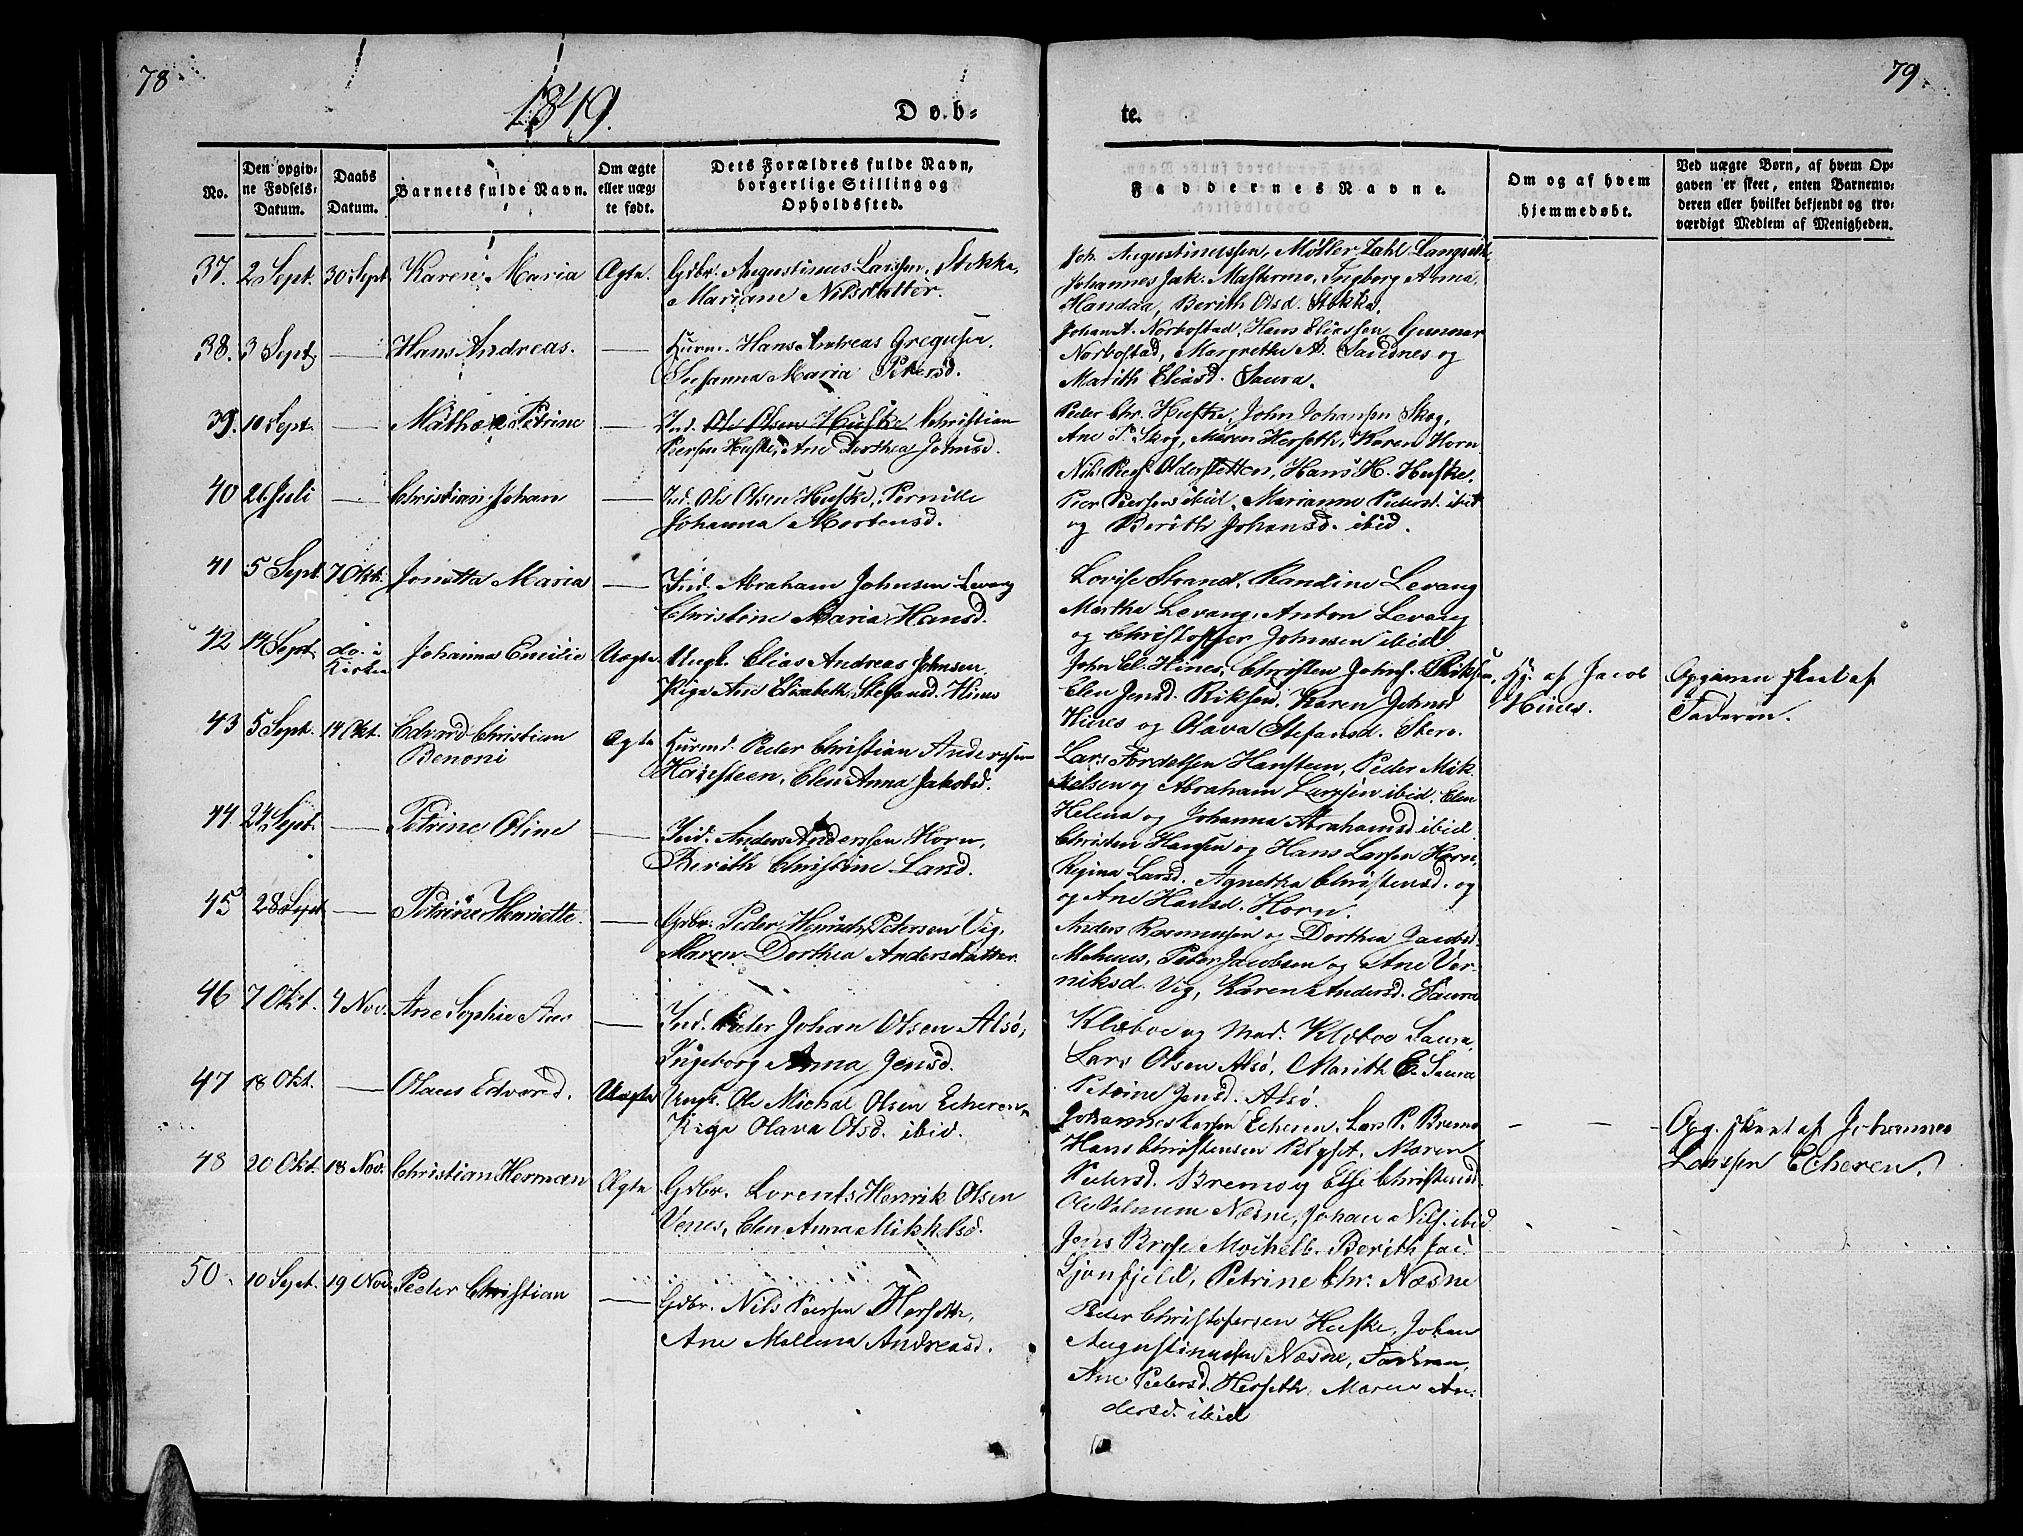 78
79
1849.
Dob=
te.
No.
Den opgiv=
ne Fødsels=
Datum.
Daabs
Datum.
Barnets fulde Navn.
Om ægte
eller uæg=
te født.
Dets Forældres fulde Navn,
borgerlige Stilling og
Opholdssted.
Faddernes Navne.
Om og af hvem
hjemmedøbt.
Ved uægte Børn, af hvem Op=
gaven er skeet, enten Barnemo=
deren eller hvilket bekjendt og tro=
værdigt Medlem af Menigheden.
37. 2 Sept. 30 Sept. Karen Maria Ægte. Gdbr. Augustinus Larssen, Stokka,
Mariane Nilsdatter.
Joh. Augustinussen, Møller Zahl Langseth,
Johannes Jak. Mastermo, Ingborg Anna
Handaa, Berith Olsd. Stokka.
38. 3 Sept. — Hans Andreas. — Hurm. Hans Andreas Gregusen.
Susanna Maria Petersd.
Johan A. Norbostad, Hans Eliassen Gunnar
Norbostad, Margrethe A. Sandnes og
Marith Eliasd. Saura.
39. 10 Sept. — Mathæ Petrine — Ind. Ole Olsen Huske Christian
Peersen Huske, Ane Dorthea Johnsd.
Peder Chr. Huske, John Johansen Skog,
Ane P. Skog, Maren Herseth, Karen Horn
40 26 Juli — Christian Johan — Ind. Ole Olsen Huske, Pernille
Johanna Mortensd.
Nils Peers. Oldersketten, Hans H. Huske,
Peer Peersen ibid, Marianne Pedersd. ibid
og Berith Johansd. ibid.
41 5 Sept. 7 Okt. Jonetta Maria — Ind. Abraham Johnsen Levang
Christine Maria Hansd.
Lovise Strand, Randine Levang
Marthe Levang, Anton Levang
og Christoffer Johnsen ibid
42 14 Sept. do. i
Kirken Johanna Emilie Uægte Ungk. Elias Andreas Johnsen,
Pige Ane Elisabeth Stefansd. Hines
John El. Hines, Christen Johns.
Elen Jensd. Riksen. Karen Johnsd
Hines og Olava Stefansd. Stero.
Hj. af Jacob
Hines.
Opgaven skeet af
Faderen.
43 5 Sept. 14 Okt. Edvard Christian
Benoni Ægte Huurmd. Peder Christian Anderssen
Hansteen, Elen Anna Jakobsd.
Lars Tordetsen Hansteen, Peder Mik
kelsen og Abraham Larssen ibid. Elen
Helena og Johanna Abrahamsd ibid
44. 24 Sept. — Petrine Oline — Ind. Anders Anderssen Horn,
Berith Christine Larsd.
Christen Hansen og Hans Larsen Horn,
Regina Larsd. Agnetha Christensd. og
og Ane Hansd. Horn.
45 28 Sept — Petrine Henriette. — Gdbr. Peder Henrich Petersen Vig,
Maren Dorthea Andersdatter.
Anders Rasmussen og Dorthea Jacobsd
Mohuus, Peter Jacobsen og Ane Ver-
niksd. Vig, Karen Andersd. Saura
46 7 Okt. 4 Nov. Ane Sophie — Ind. Peder Johan Olsen Alsø,
Ingeborg Anna Jensd.
Klæboe og Mad. Klæboe Saura,
Lars Olsen Alsø, Marith E. Saura
Petrine Jensd. Alsø.
47 18 Okt. — Olaus Edvard. Uægte Ungk. Ole Michal Olsen Echeren,
Pige Olava Olsd. ibid.
Johannes Larsen Echeren, Lars P. Bremo
Hans Christensen Bligset, Maren
Pedersd. Bremo og Else Christensd.
— —
Opg. skeet af Johannes
Larssen Echeren.
48 20 Okt. 18 Nov. Christian Herman Ægte Gdbr. Lorents Henrik Olsen
Venes, Elen Anna Mikkelsd.
Ole Valmum Næsne, Johan Nils. ibid
Jens Brose Mochelb. Berith Jac.
Sjonfjeld, Petrine Chr. Næsne
50 10 Sept. 19 Nov. Peder Christian — Gdbr. Nils Peersen Herseth,
Ane Mallena Andreasd.
Peder Christofersen Huske, Johan
Augustinussen Næsne, Faderen,
Ane Pedersd. Herseth, Maren An-
dersd. ibid